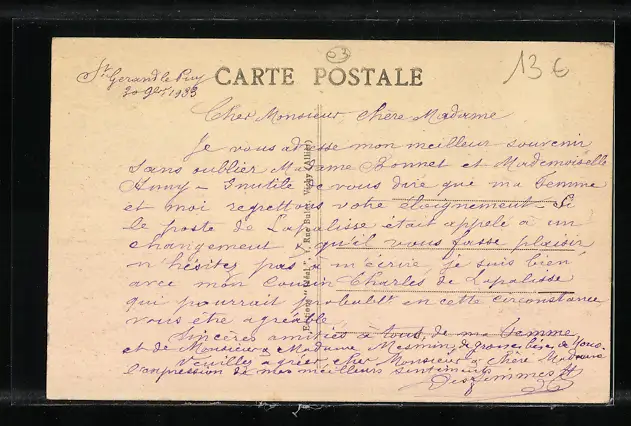 03
13 €
St Gerand le Puy
CARTE POSTALE
30 9bre 1933
Cher Monsieur, chère Madame
Je vous adresse mon meilleur souvenir
sans oublier Madame Bonnet et Mademoiselle
Anny – Inutile de vous dire que ma femme
et moi regrettons votre éloignement – Si
le poste de Lapalisse était appelé à un
changement & qu'il vous fasse plaisir
n'hésitez pas à m'écrire, je suis bien
avec mon cousin Charles de Lapalisse
qui pourrait probablt en cette circonstance
vous être agréable
Sincères amitiés à tous, de ma femme
et de Monsieur & Madame Mesmin, & grosses bises de
Veuillez agréer, cher Monsieur & Chère Madame
l'expression de mes meilleurs sentiments
Editions "Idéal", Rue Vichy (Allier)